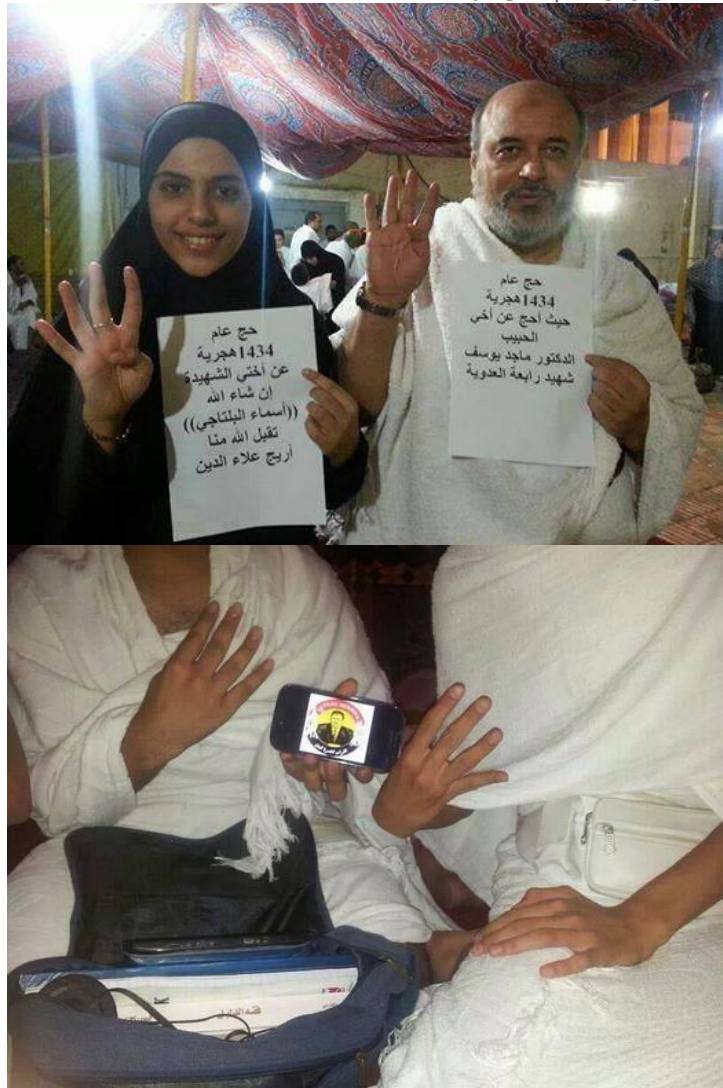 حج عام
1434هجرية
عن أختي الشهيدة
إن شاء الله
((أسماء البلتاجي))
تقبل الله منا
أريج علاء الدين
حج عام
1434هجرية
حيث أحج عن أخي
الحبيب
الدكتور ماجد يوسف
شهيد رابعة العدوية